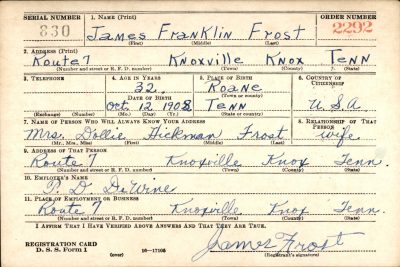 SERIAL NUMBER 1. NAME (Print) ORDER NUMBER
830 James Franklin Frost 2292
(First) (Middle) (Last)
2. ADDRESS (Print)
Route 7 Knoxville Knox Tenn
(Number and street or R. F. D. number) (Town) (County) (State)
3. TELEPHONE 4. AGE IN YEARS 5. PLACE OF BIRTH 6. COUNTRY OF CITIZENSHIP
32. Roane
DATE OF BIRTH (Town or county)
Oct 12 1908 Tenn U.S.A.
(Exchange) (No.) (Mo.) (Day) (Yr.) (State or country)
7. NAME OF PERSON WHO WILL ALWAYS KNOW YOUR ADDRESS 8. RELATIONSHIP OF THAT PERSON
Mrs. Dollie Hickman Frost wife
(Mr., Mrs., Miss) (First) (Middle) (Last)
9. ADDRESS OF THAT PERSON
Route 7 Knoxville Knox Tenn.
(Number and street or R. F. D. number) (Town) (County) (State)
10. EMPLOYER'S NAME
P. D. DeWine
11. PLACE OF EMPLOYMENT OR BUSINESS
Route 7 Knoxville Knox Tenn.
(Number and street or R. F. D. number) (Town) (County) (State)
I AFFIRM THAT I HAVE VERIFIED ABOVE ANSWERS AND THAT THEY ARE TRUE.
REGISTRATION CARD James Frost
D. S. S. Form 1 (over) 16—17105 (Registrant's signature)